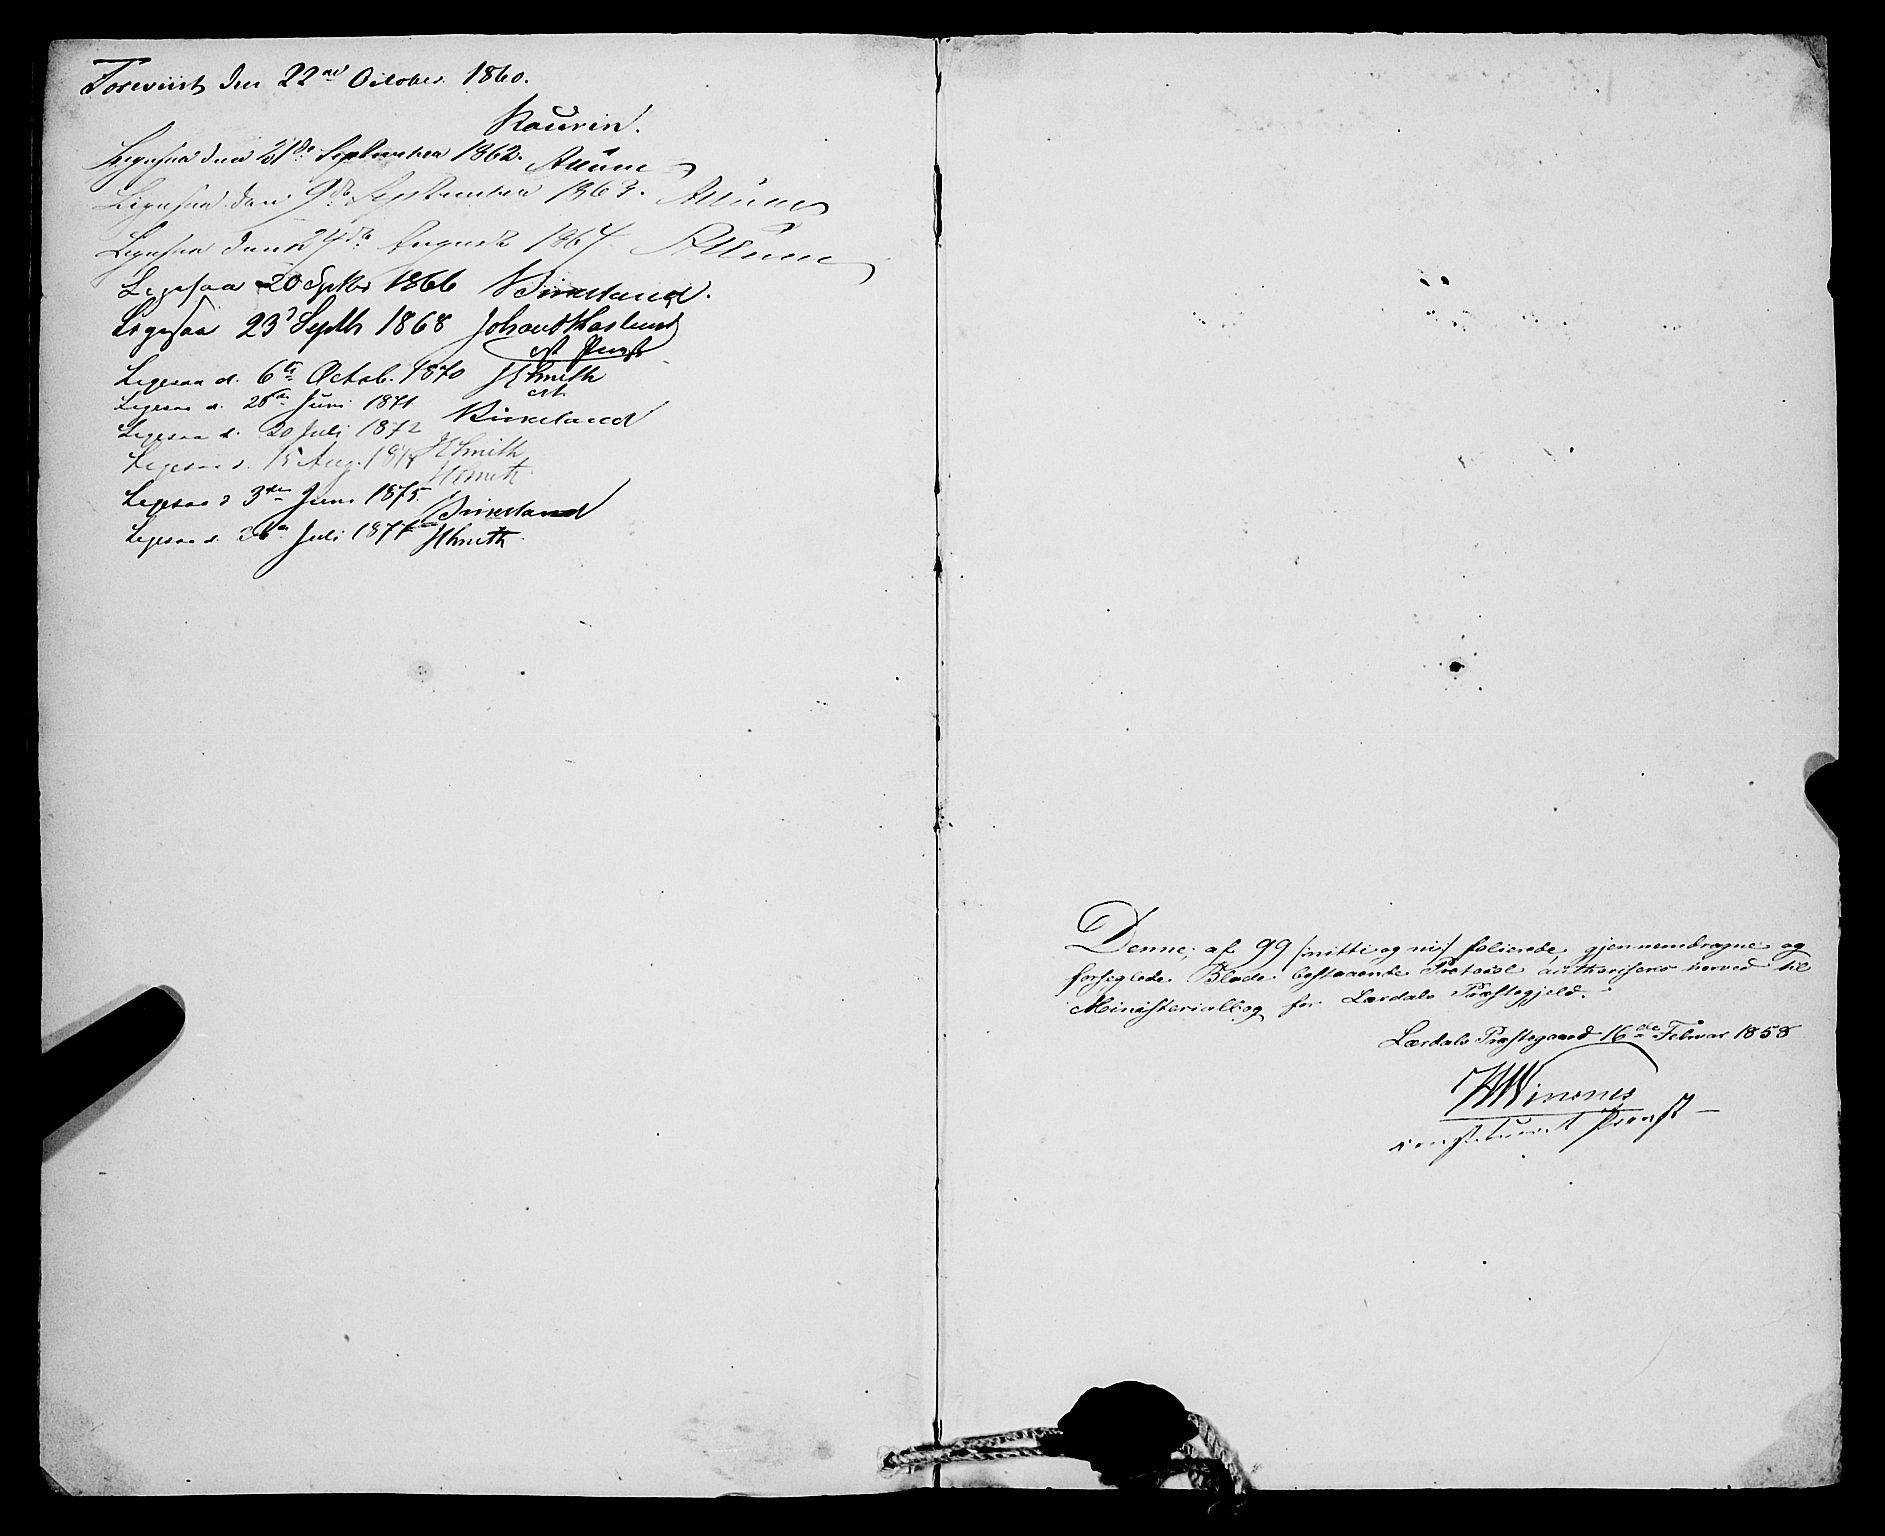 Foreviist den 22nd October 1860.
Kaurin.
Ligesaa den 21de September 1862.
Ligesaa den 9de September 1863.
Ligesaa den 24de August 1864
Ligesaa 20 Septbr 1866 Birkeland.
Ligesaa 23d Septbr 1868 Johan Haslund
cst Provst
Ligesaa d. 6te Octob. 1870 Smith
cst.
Ligesaa d. 28de Juni 1871
Ligesaa d. 20 Juli 1872 Birkeland
Ligesaa d. 15 Aug. Smith
Smith
Ligesaa d 3die Juni 1875. Birkeland
Ligesaa d. Juli Smith
Denne, af 99 /nitti og ni/ folierede, gjennemdragne og
forseglede Blade bestaaende Protocol authoriseres herved til
Ministerialbog for Lærdals Præstegjeld.
Lærdals Præstegaard 16de Februar 1858
constitueret Provst